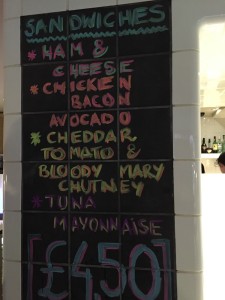 SANDWICHES
* HAM &
CHEESE
* CHICKEN
BACON
AVOCADO
* CHEDDAR
TOMATO &
BLOODY MARY
CHUTNEY
* TUNA
MAYONNAISE
[£4.50]